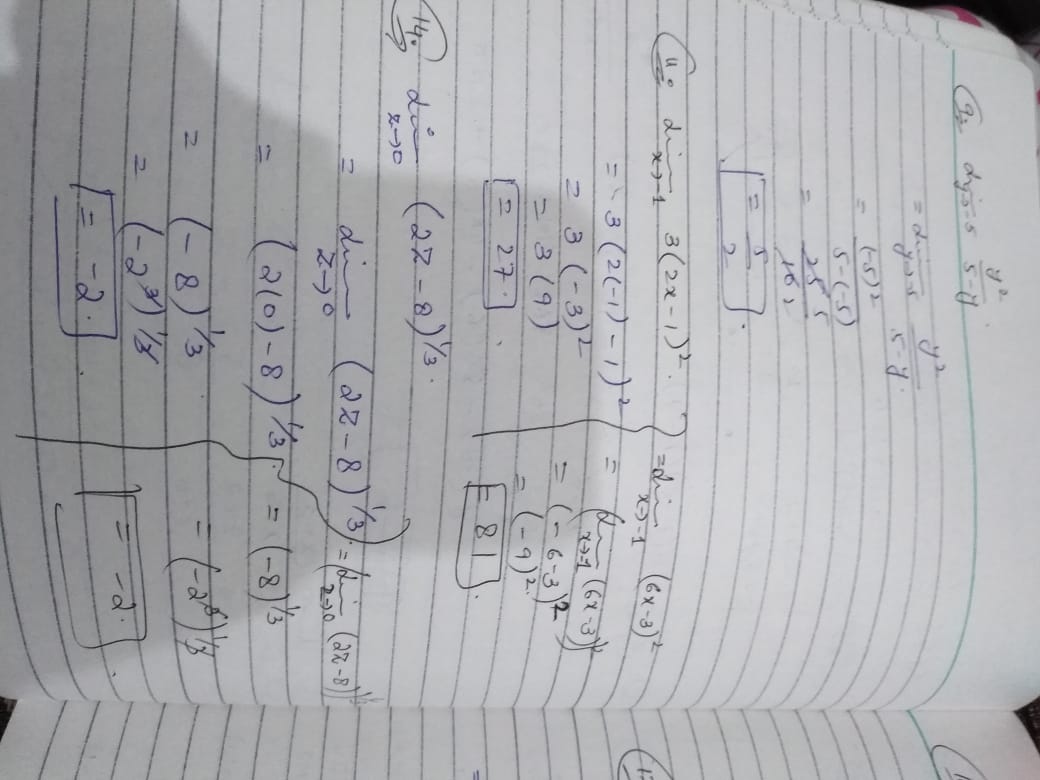 9. lim y→-5 y²/5-y
= lim y→-5 y²/5-y.
= (-5)²/5-(-5)
= 25 5/10 2
= 5/2.
11. lim x→-1 3(2x-1)².
= 3(2(-1)-1)²
= 3(-3)²
= 3(9)
= 27.
= lim x→-1 (6x-3)²
= lim x→-1 (6x-3)²
= (-6-3)²
= (-9)².
= 81.
14. lim z→0 (2z-8)^1/3.
= lim z→0 (2z-8)^1/3.
= (2(0)-8)^1/3.
= (-8)^1/3.
= (-2³)^1/3
= -2.
= lim z→0 (2z-8)^1/3
= (-8)^1/3
= (-2³)^1/3
= -2.